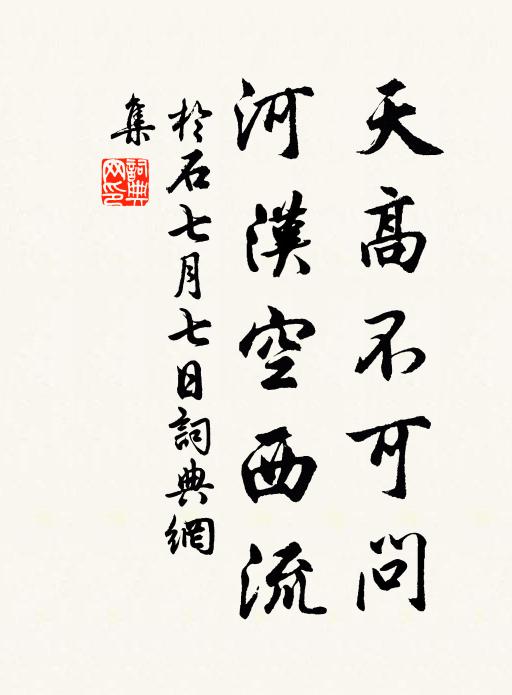 天高不可問
河漢空西流
於石七月七日詞典網
集
詞典
网印